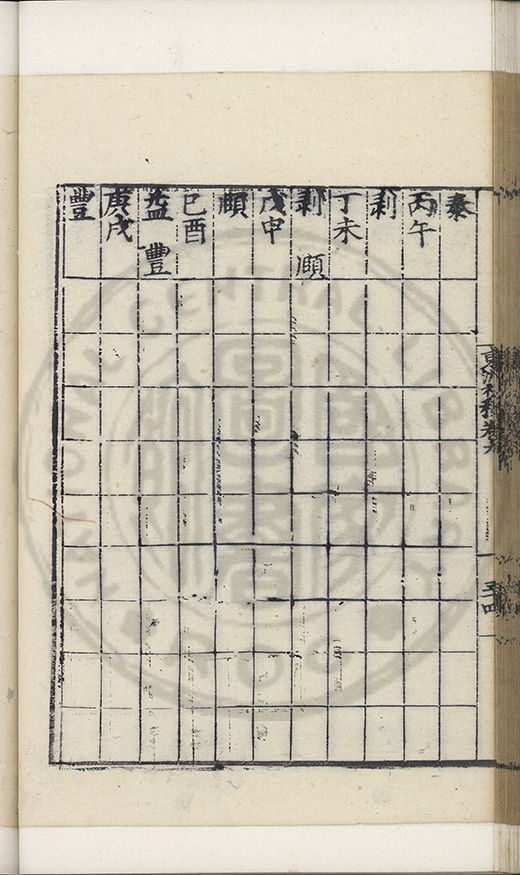 泰
丙午
剥
丁未
剥 頤
戊申
頤
己酉
益 豐
庚戌
豐
CENTRAL LIBRARY